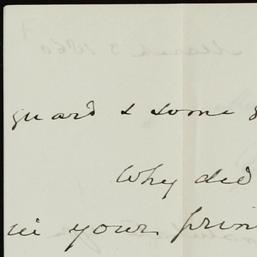 guard & some
Why did
in your prin